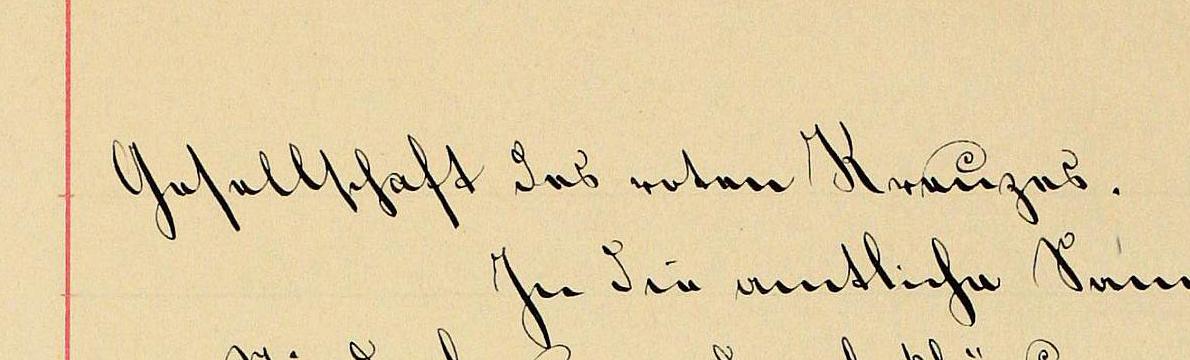 Gesellschaft des roten Kreuzes.
In die amtliche